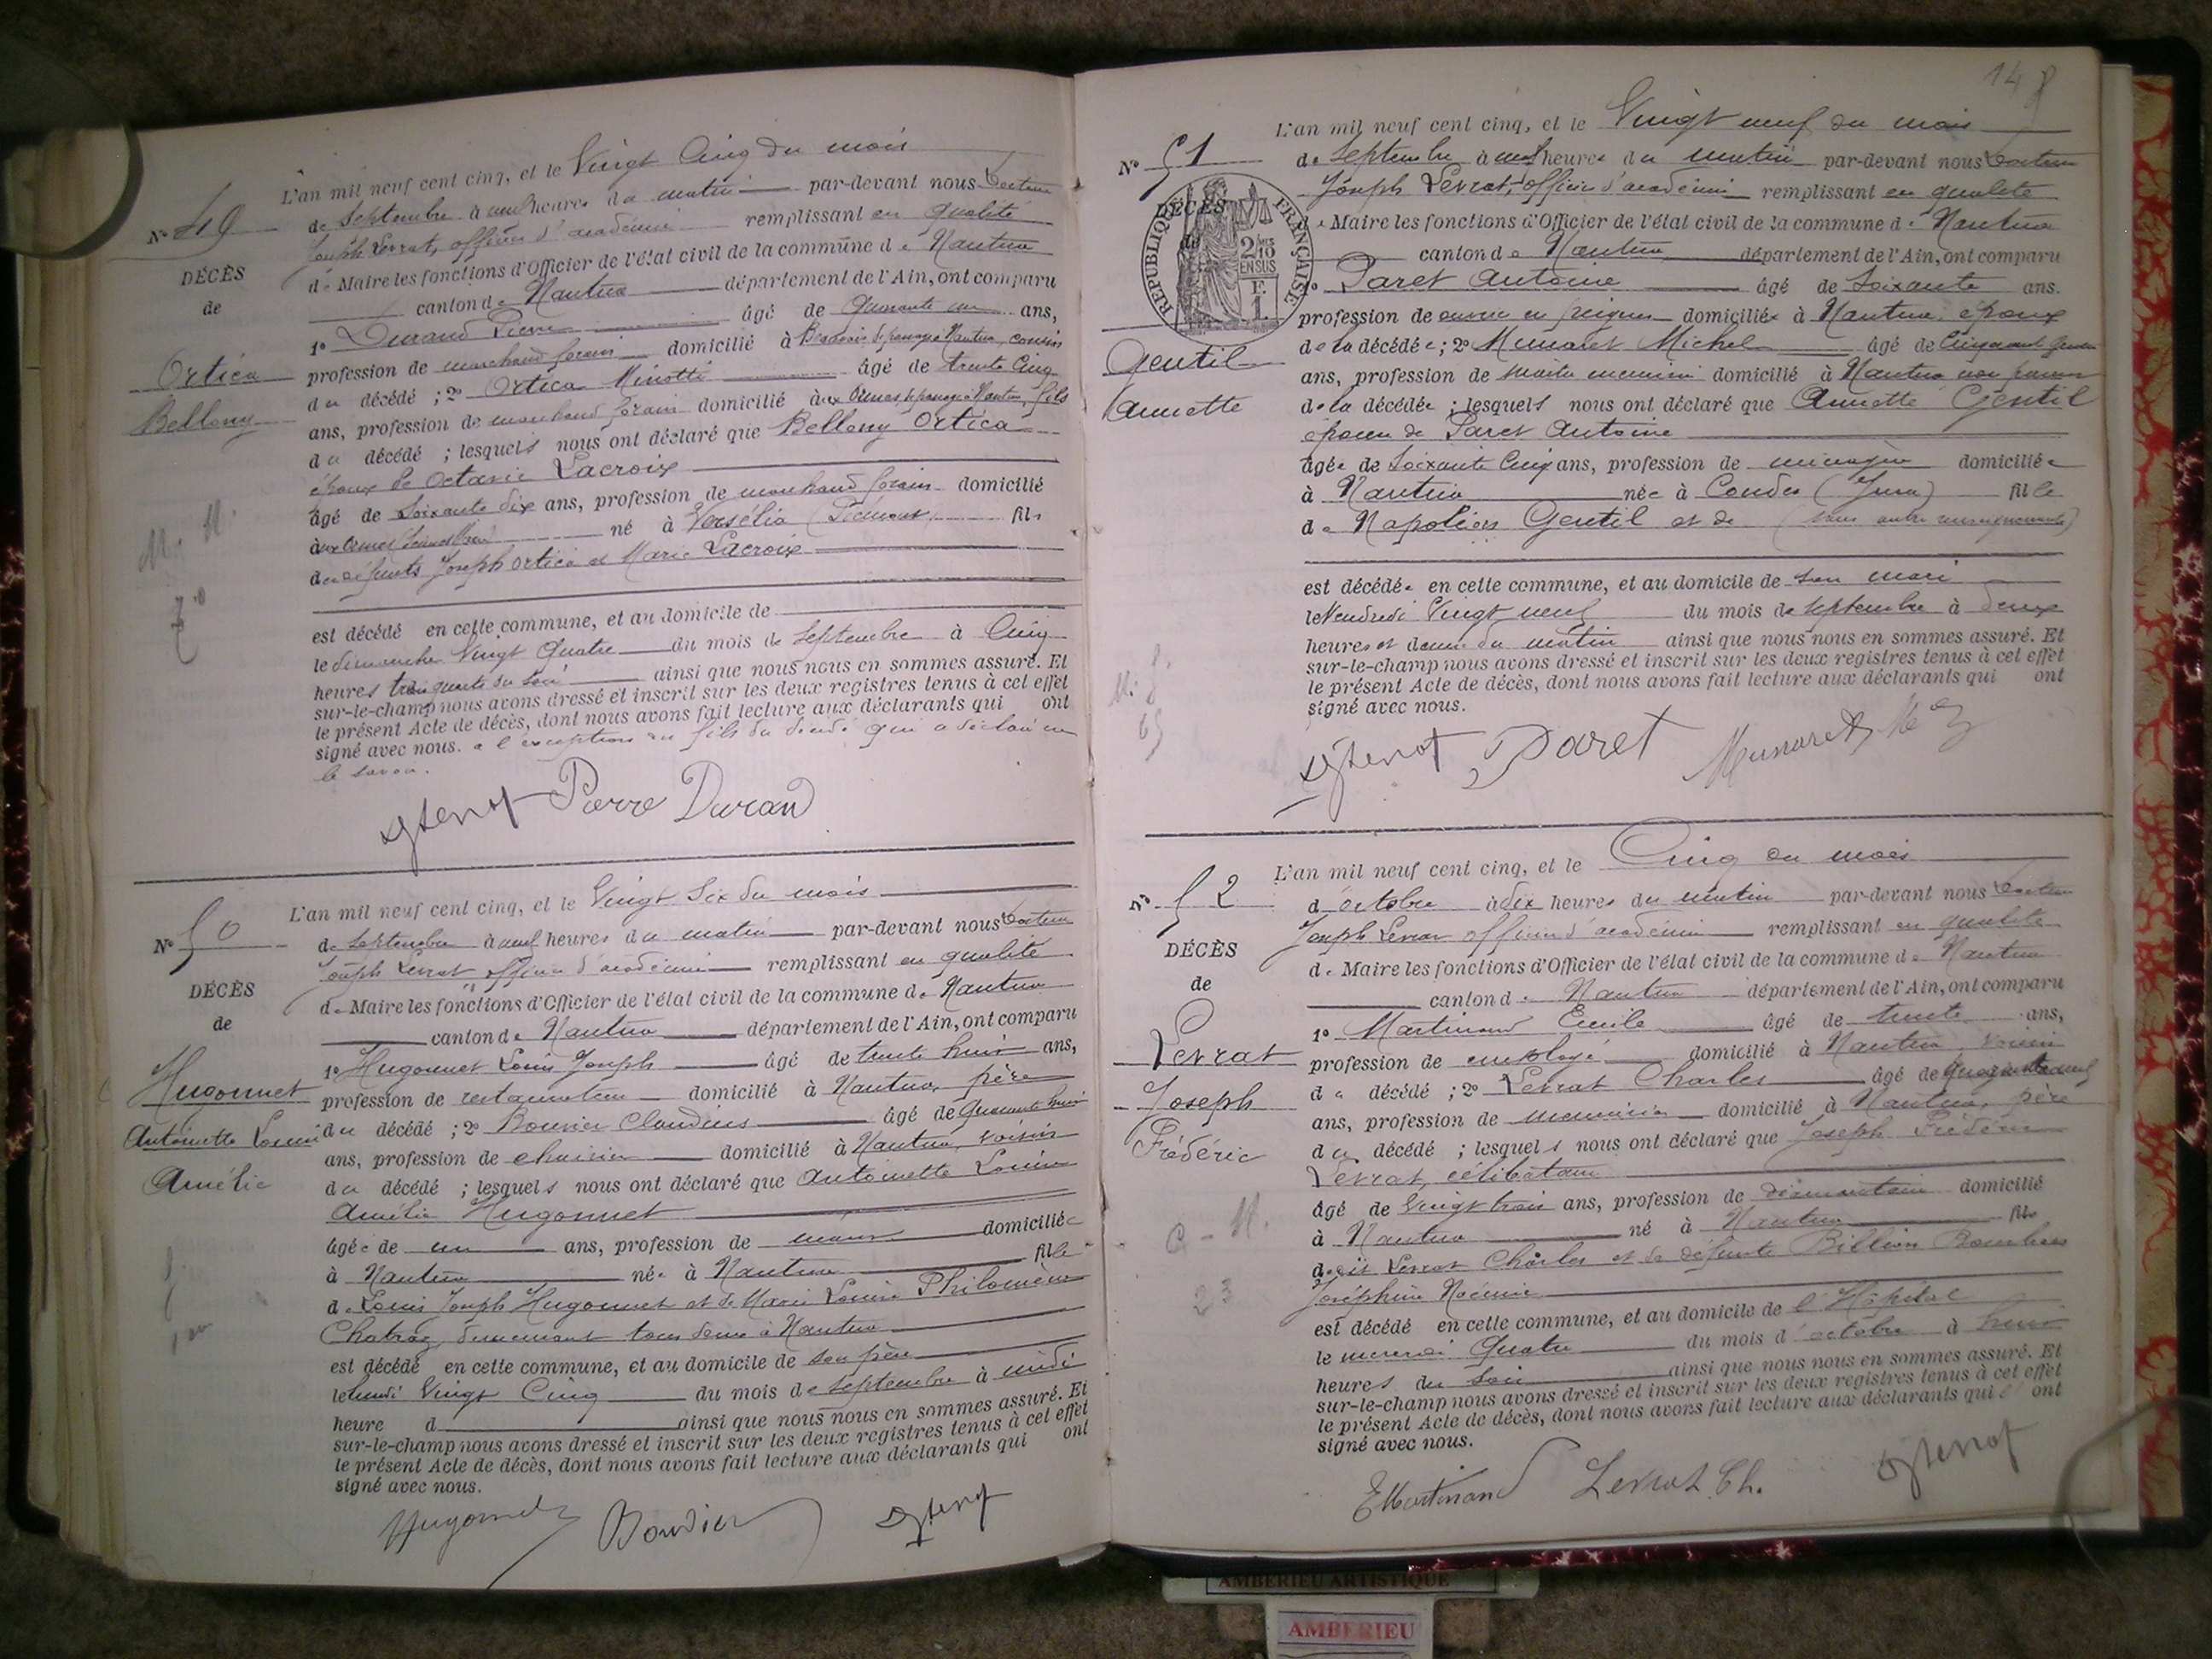 L'an mil neuf cent cinq, et le Vingt Cinq du mois
No 49
de Septembre à neuf heures du matin par-devant nous Docteur
Joseph Levrat, officier d'académie remplissant en qualité
DÉCÈS
de Maire les fonctions d'Officier de l'état civil de la commune de Nantua
de
canton de Nantua département de l'Ain, ont comparu
1o Durand Pierre âgé de Quarante un ans,
Ortica
profession de marchand forain domicilié à de passage à Nantua, cousin
Bellony
du décédé ; 2o Ortica Minotti âgé de trente Cinq
ans, profession de marchand forain domicilié de passage à Nantua, fils
du décédé ; lesquels nous ont déclaré que Bellony Ortica
époux de Octavie Lacroix
âgé de Soixante dix ans, profession de marchand forain domicilié
né à Versélia (Piémont) fils
M. H.
de défunts Joseph Ortica et Marie Lacroix
70
est décédé en cette commune, et au domicile de
le dimanche Vingt Quatre du mois de Septembre à Cinq
heures trois quarts du soir ainsi que nous nous en sommes assuré. Et
sur-le-champ nous avons dressé et inscrit sur les deux registres tenus à cet effet
le présent Acte de décès, dont nous avons fait lecture aux déclarants qui ont
signé avec nous. à l'exception du fils du décédé qui a déclaré ne
le savoir.
Pierre Durand
L'an mil neuf cent cinq, et le Vingt Six du mois
No 50
de Septembre à neuf heures du matin par-devant nous Docteur
Joseph Levrat, officier d'académie remplissant en qualité
DÉCÈS
de Maire les fonctions d'Officier de l'état civil de la commune de Nantua
de
canton de Nantua département de l'Ain, ont comparu
1o Hugonnet Louis Joseph âgé de trente huit ans,
Hugonnet
profession de restaurateur domicilié à Nantua, père
Antoinette Louise
du décédé ; 2o Bouvier Claudius âgé de Quarante huit
ans, profession de domicilié à Nantua, voisin
Amélie
du décédé ; lesquels nous ont déclaré que Antoinette Louise
Amélie Hugonnet
âgée de un ans, profession de domiciliée
à Nantua née à Nantua fille
de Louis Joseph Hugonnet et de Marie Louise Philomène
demeurant tous deux à Nantua
est décédé en cette commune, et au domicile de son père
le lundi Vingt Cinq du mois de Septembre à midi
heure d ainsi que nous nous en sommes assuré. Et
sur-le-champ nous avons dressé et inscrit sur les deux registres tenus à cet effet
le présent Acte de décès, dont nous avons fait lecture aux déclarants qui ont
signé avec nous.
Hugonnet
148
L'an mil neuf cent cinq, et le Vingt neuf du mois
No 51
de Septembre à neuf heures du matin par-devant nous Docteur
Joseph Levrat, officier d'académie remplissant en qualité
RÉPUBLIQUE FRANÇAISE
2/10 EN SUS
F. 1.
DÉCÈS
de
de Maire les fonctions d'Officier de l'état civil de la commune de Nantua
canton de Nantua département de l'Ain, ont comparu
1o Paret Antoine âgé de Soixante ans.
profession de ouvrier en peignes domicilié à Nantua, époux
Gentil
de la décédée ; 2o Munaret Michel âgé de
Annette
ans, profession de domicilié à Nantua non parent
de la décédée ; lesquels nous ont déclaré que Annette Gentil
épouse de Paret Antoine
âgée de Soixante Cinq ans, profession de ménagère domiciliée
à Nantua née à Condes (Jura) fille
de Napoléon Gentil et de (sans autre renseignements)
est décédée en cette commune, et au domicile de son mari
le Vendredi Vingt neuf du mois de Septembre à deux
heures et demie du matin ainsi que nous nous en sommes assuré. Et
sur-le-champ nous avons dressé et inscrit sur les deux registres tenus à cet effet
le présent Acte de décès, dont nous avons fait lecture aux déclarants qui ont
signé avec nous.
65
Paret Munaret
L'an mil neuf cent cinq, et le Cinq du mois
No 52
d'octobre à dix heures du matin par-devant nous Docteur
Joseph Levrat officier d'académie remplissant en qualité
DÉCÈS
de Maire les fonctions d'Officier de l'état civil de la commune de Nantua
de
canton de Nantua département de l'Ain, ont comparu
1o Martinand Emile âgé de trente ans,
Levrat
profession de employé domicilié à Nantua, voisin
Joseph
du décédé ; 2o Levrat Charles âgé de Quarante neuf
ans, profession de menuisier domicilié à Nantua, père
Frédéric
du décédé ; lesquels nous ont déclaré que Joseph Frédéric
Levrat, célibataire
âgé de Vingt trois ans, profession de diamantaire domicilié
à Nantua né à Nantua fils
Levrat Charles et de défunte
Joséphine Noémie
23
est décédé en cette commune, et au domicile de l'Hôpital
le mercredi Quatre du mois d'octobre à huit
heures du soir ainsi que nous nous en sommes assuré. Et
sur-le-champ nous avons dressé et inscrit sur les deux registres tenus à cet effet
le présent Acte de décès, dont nous avons fait lecture aux déclarants qui ont
signé avec nous.
E Martinand Levrat Ch.
AMBERIEU ARTISTIQUE
AMBERIEU